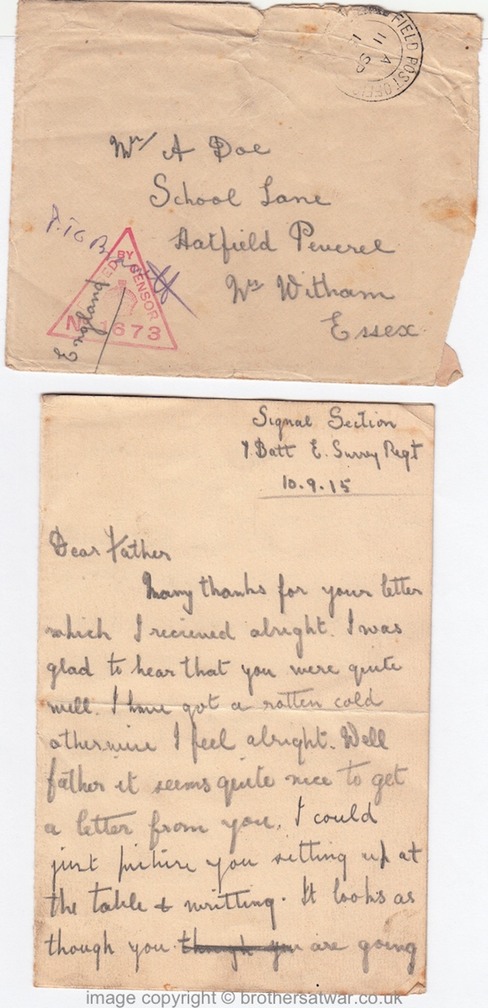 FIELD POST OFFICE
11 SP
Mr A Doe
School Lane
Hatfield Peverel
Nr Witham
Essex
England
PASSED BY CENSOR
No 1673
Signal Section
7 Batt E. Surrey Regt
10.9.15
Dear Father
Many thanks for your letter
which I recieved alright. I was
glad to hear that you were quite
well. I have got a rotten cold
otherwise I feel alright. Well
father it seems quite nice to get
a letter from you. I could
just picture you sitting up at
the table & writting. It looks as
though you though you are going
image copyright © brothersatwar.co.uk